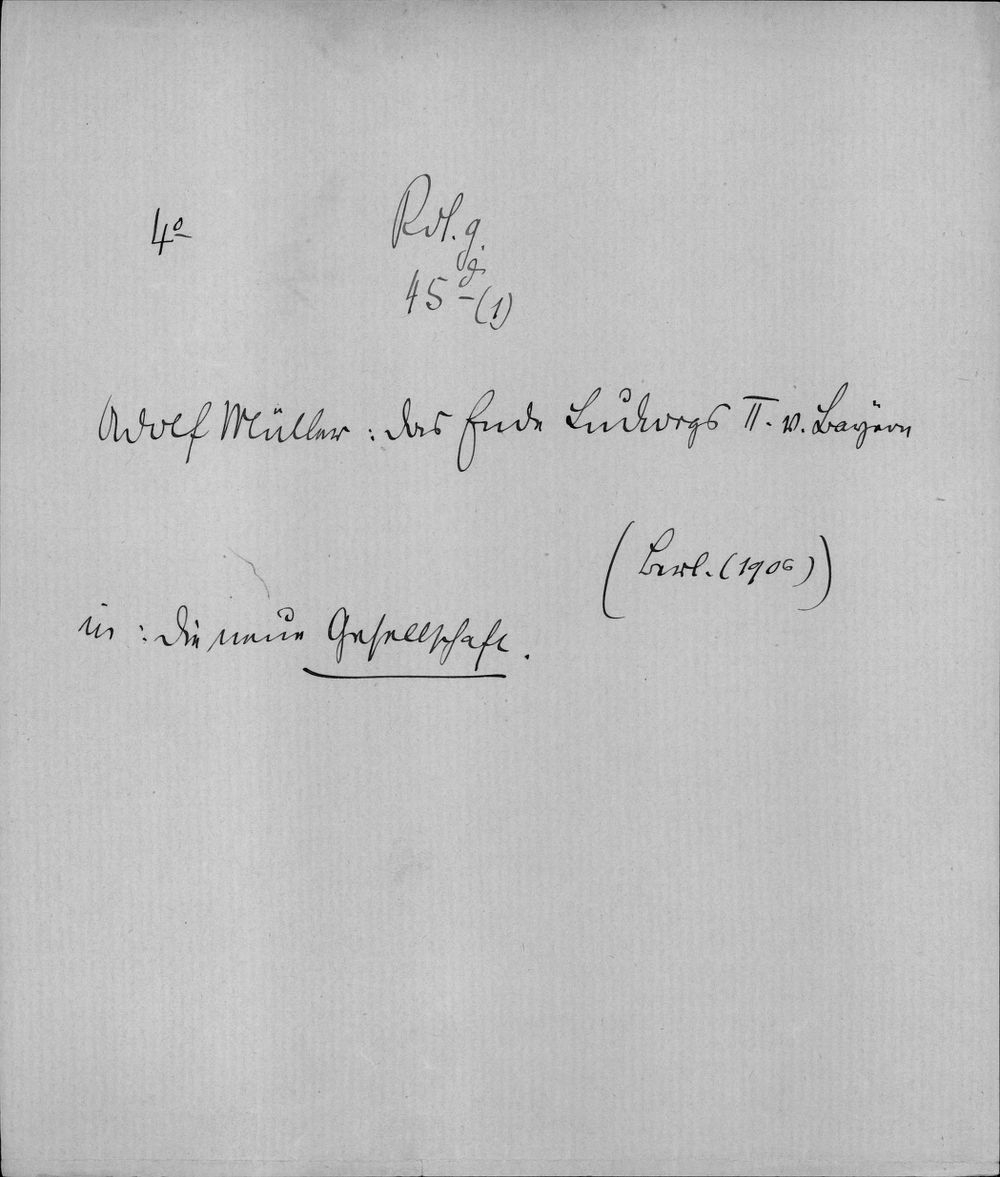 4°
Rvl. g.
45 d (1)
Adolf Müller: Das Ende Ludwigs II. v. Bayern
(Berl. (1906))
in: Die neue Gesellschaft.